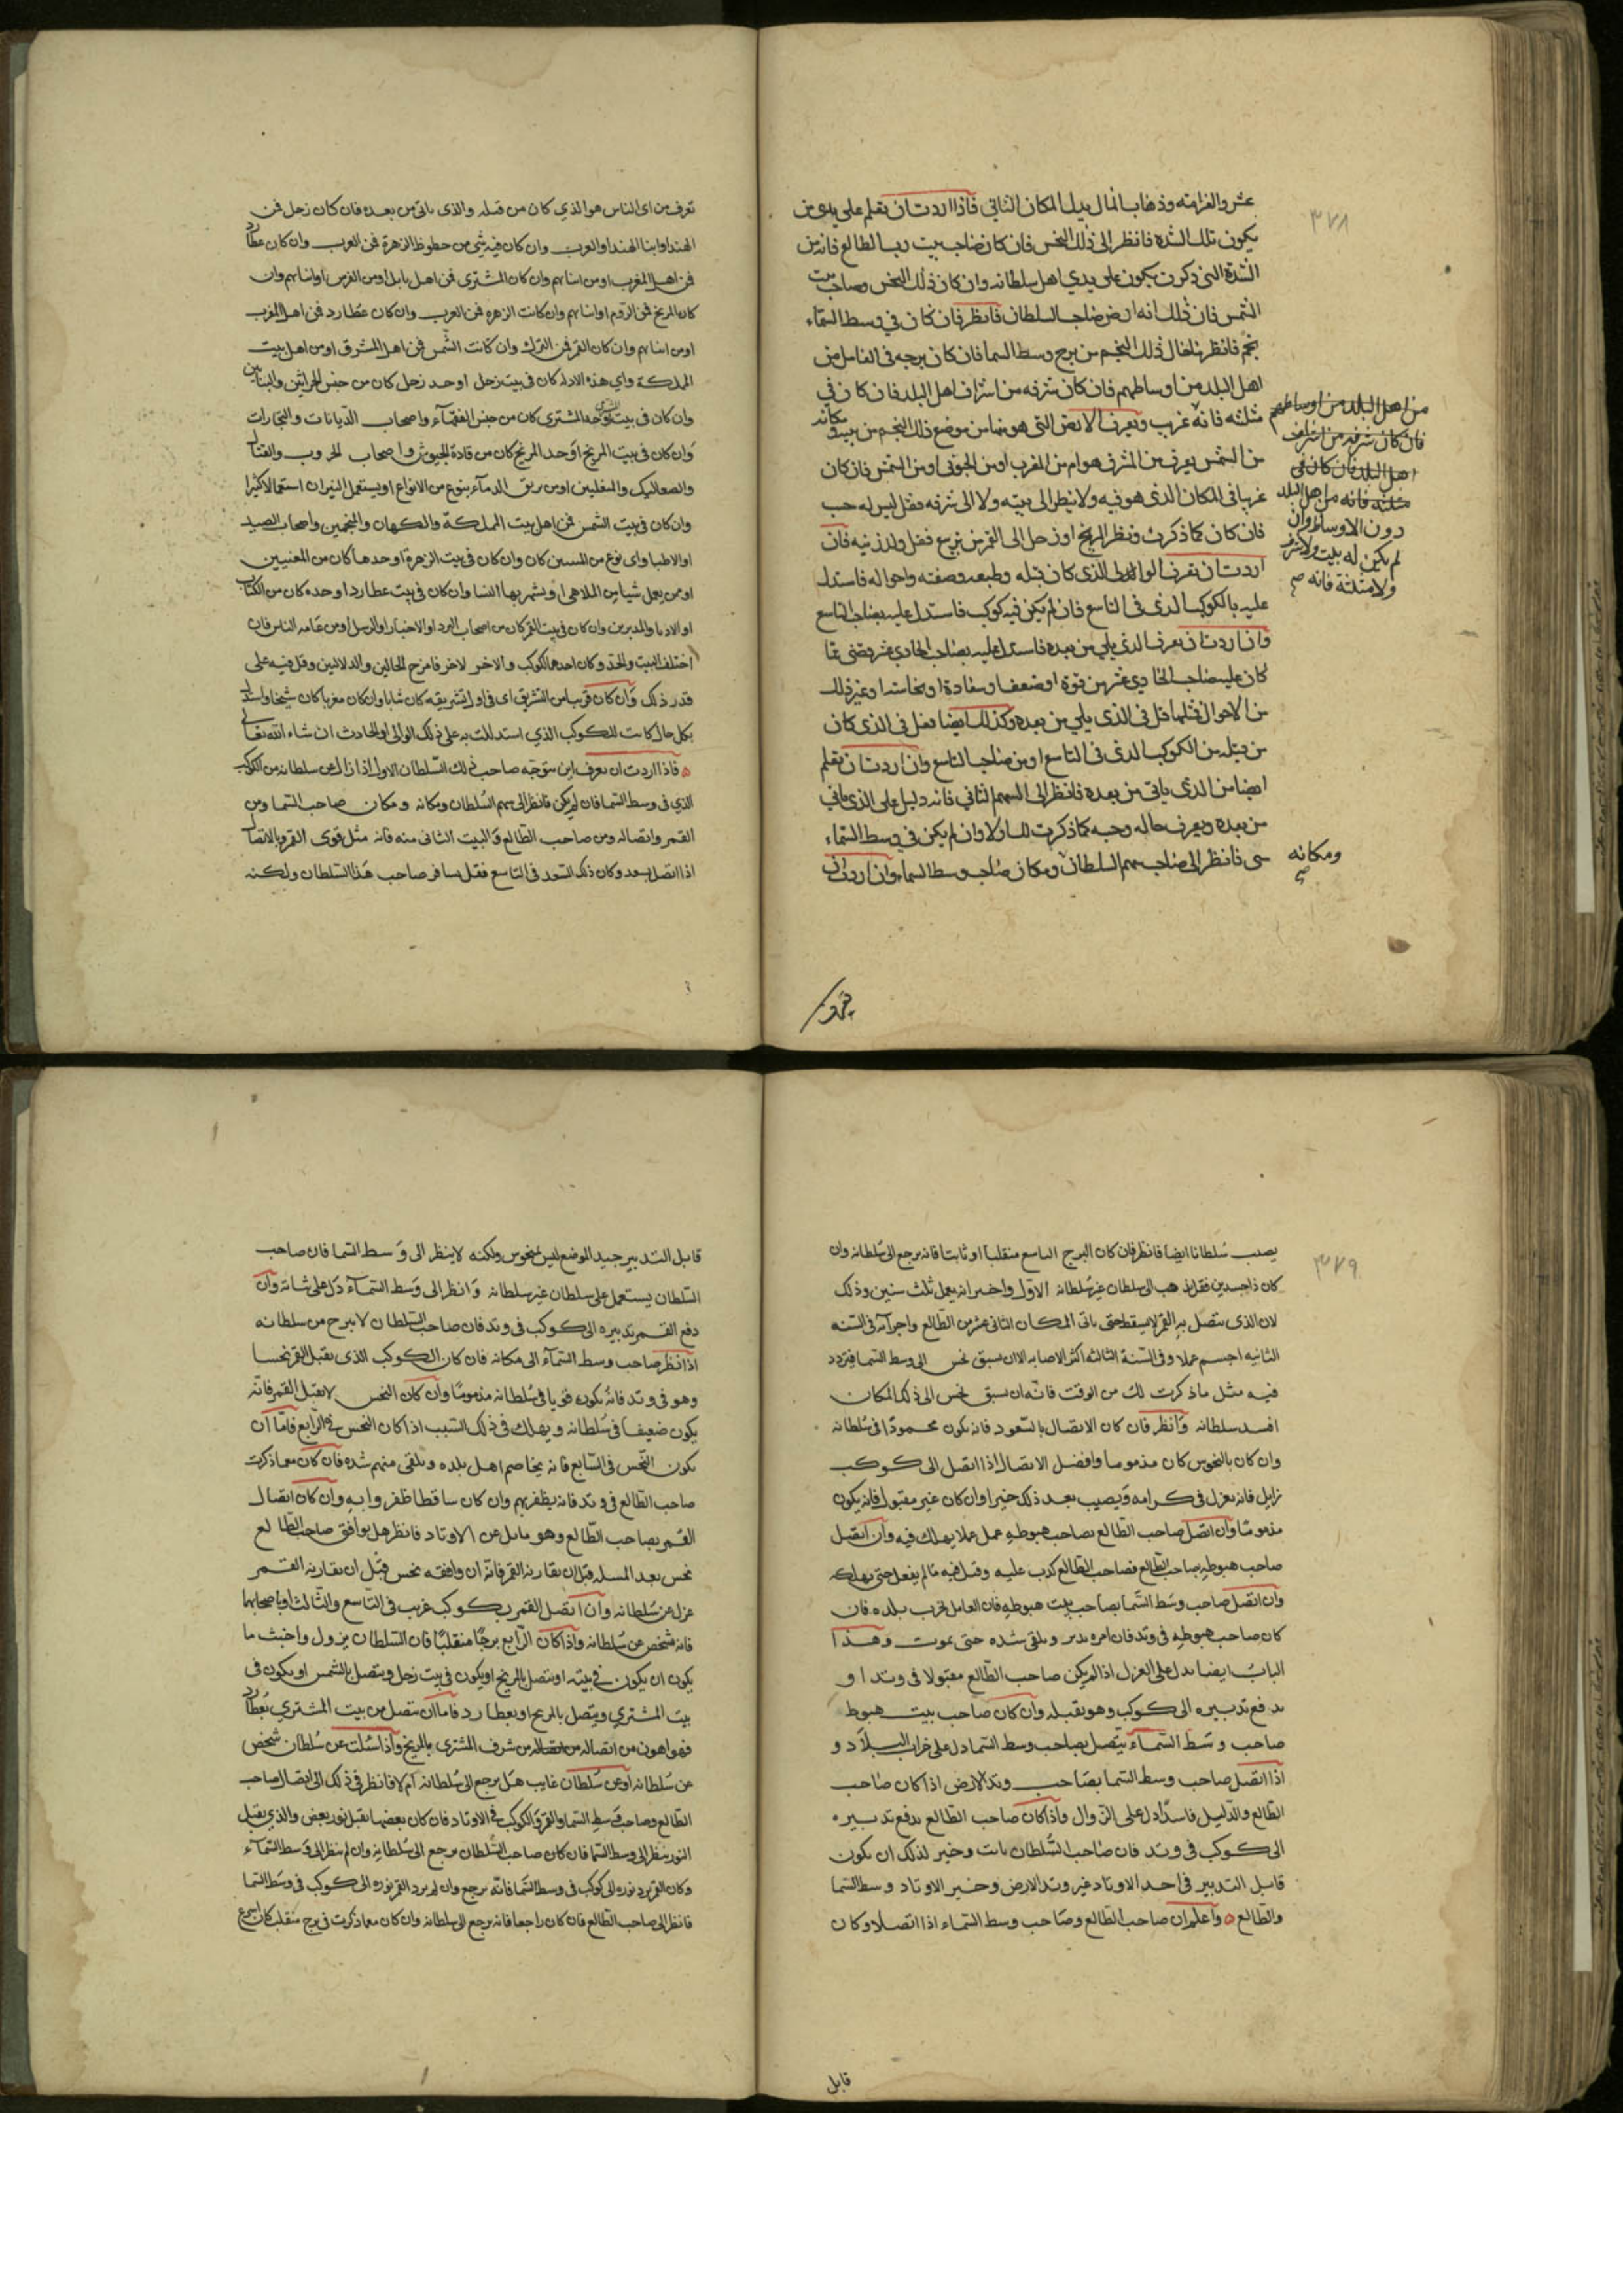 ٣٧٨
عشر والغرامة وذهاب المال يدل المكان الثاني فاذا اردت ان تعلم على يدي من
يكون تلك الشدة فانظر الى ذلك النحس فان كان صاحب بيت رب الطالع فانه من
الشدة التي ذكرت يكون على يدي اهل سلطانه وان كان ذلك النحس وصاحب بيت
الشمس فان ذلك انه ارض صاحب السلطان فانظر فان كان في وسط السماء
نجم فانظر ذلك النجم من برج وسط السما فان كان برجه في
اهل البلد من اوساطهم فان كان شرفه من اشراف اهل البلد فان كان في
مثلثه فانه غريب وتعرف الارض التي هو منها من موضع ذلك النجم من بيته ومكانه
من الشمس يعرف من المشرق هو ام من المغرب او من الجوف او من الشمس فان كان
غريبا في المكان الذي هو فيه ولا ينظر الى بيته ولا الى شرفه فقل ليس له حسب
فان كان كما ذكرت ونظر المريخ او زحل الى القمر من تربيع فقل ولد زنيه فان
اردت ان تعرف الوالي الذي كان قبله وطبعه وصفته واحواله فاستدل
عليه بالكوكب الذي في التاسع فان لم يكن فيه كوكب فاستدل عليه بصاحب التاسع
وان اردت ان تعرف الذي يلي من بعده فاستدل عليه بصاحب الحادي عشر وقضى بما
كان عليه صاحب الحادي عشر من قوة او ضعف او سعادة او نحاسة او غير ذلك
من الاحوال فمثلها قل في الذي يلي من بعده وكذلك ايضا فعل في الذي كان
من قبله من الكوكب الذي في التاسع او من صاحب التاسع وان اردت ان تعلم
ايضا من الذي ياتي من بعده فانظر الى السهم الثاني فانه دليل على الذي ياتي
من بعده وتعرف حاله وحسبه كما ذكرت لك اولا وان لم يكن في وسط السماء
شى فانظر الى صاحب سهم السلطان ومكان صاحب وسط السماء وان اردت ان
من اهل البلد من اوساطهم
فان كان شرفه من اشراف
اهل البلد فان كان في
مثلثه فانه من اهل البلد
دون الاوساط وان
لم يكن له بيت ولا شرف
ولا مثلثة فانه صح
ومكانه
صح
تعرف من اى الناس هو الذي كان من قبله والذى ياتي من بعده فان كان زحل فمن
الهند او ابنا الهند او العرب وان كان فيه شي من حظوظ الزهرة فمن العرب وان كان عطارد
فمن اهل المغرب او من ابنائهم وان كان المشترى فمن اهل بابل او من الفرس او ابنائهم وان
كان المريخ فمن الروم او ابنائهم وان كانت الزهره فمن العرب وان كان عطارد فمن اهل المغرب
او من ابنائهم وان كان القمر فمن الترك وان كانت الشمس فمن اهل المشرق او من اهل بيت
المملكة واي هذه الادلة كان في بيت زحل او حد زحل كان من جنس الحراثين والبنايين
وان كان في بيت المشترى او حد المشترى كان من جنس الفقهآء واصحاب الديانات والتجارات
وان كان في بيت المريخ او حد المريخ كان من قادة الجيوش واصحاب الحروب والقتال
والصعاليك والسفلين او من يريق الدمآء بنوع من الانواع او يستعمل النيران استعمالا كثيرا
وان كان في بيت الشمس فمن اهل بيت المملكة والكهان والمنجمين واصحاب الصيد
او الاطبا واى نوع من كان وان كان في بيت الزهرة او حدها كان من المغنيين
او ممن يعمل شيا من الملاهي او يشتهر بها النسا وان كان في بيت عطارد او حده كان من الكتاب
او الادبا والمدبرين وان كان في بيت القمر كان من اصحاب البرد او الاخبار او الرسل او من عامه الناس فان
اختلف البيت والحد وكان احدهما لكوكب والاخر لاخر فامزج الحالين والدلالتين وقل فيه على
قدر ذلك وان كان قريبا من التشريق اى في اول تشريقه كان شابا وان كان مغربا كان شيخا واستدل
بكل حال كانت للكوكب الذي استدللت به على ذلك الوالي او الحادث ان شاء الله تعالى
ه فاذا اردت ان تعرف اين يتوجه صاحب ذلك السلطان الاول اذا زال عن سلطانه من الكوكب
الذي في وسط السما فان لم يكن فانظر الى سهم السلطان ومكانه ومكان صاحب السما ومن
القمر واتصاله ومن صاحب الطالع والبيت الثانى منه فانه مثل قوى القمر وبالاتصال
اذا اتصل بسعد وكان ذلك السعد في التاسع فقل يسافر صاحب هذا السلطان ولكنه
٣٧٩
يصيب سلطانا ايضا فانظر فان كان البرج التاسع منقلبا او ثابتا فانه يرجع الى سلطانه وان
كان ذا جسدين فقل يذهب الى سلطان غير سلطانه الاول واخبر انه يعمل ثلث سنين وذلك
لان الذى يتصل به القمر لا يسقط حتى ياتى المكان الثانى عشر من الطالع واجرآنه في السنه
الثانيه اجسم عملا وفى السنة الثالثه اكثر الاصابه الا ان يسبق نحس الى وسط السما فتردد
فيه مثل ما ذكرت لك من الوقت فانه ان سبق نحس الى ذلك المكان
افسد سلطانه وانظر فان كان الاتصال بالسعود فانه يكون محمودا في سلطانه
وان كان بالنحوس كان مذموما وافضل الاتصال اذا اتصل الى كوكب
زايل فانه يعزل في كرامه ويصيب بعد ذلك خيرا وان كان غير مقبول فانه يكون
مذموما وان اتصل صاحب الطالع بصاحب هبوطه عمل عملا يهلك فيه وان اتصل
صاحب هبوطه بصاحب الطالع فصاحب الطالع كذب عليه وقيل فيه مالم يفعل حتى يهلك
وان اتصل صاحب وسط السما بصاحب بيت هبوطه فان العامل يخرب بلده فان
كان صاحب هبوطه في وتد فان امره يدبر ويلقى شده حتى يموت وهذا
الباب ايضا يدل على العزل اذا لم يكن صاحب الطالع مقبولا في وتد او
يدفع تدبيره الى كوكب وهو يقبله وان كان صاحب بيت هبوط
صاحب وسط السماء يتصل بصاحب وسط السما دل على خراب البلاد و
اذا اتصل صاحب وسط السما بصاحب وتد الارض اذا كان صاحب
الطالع والدليل فاسدا دل على الزوال واذا كان صاحب الطالع يدفع تدبيره
الى كوكب في وتد فان صاحب السلطان ثابت وخير لذلك ان يكون
قابل التدبير في احد الاوتاد غير وتد الارض وخير الاوتاد وسط السما
والطالع ه واعلم ان صاحب الطالع وصاحب وسط السماء اذا اتصلا وكان
قابل
قابل التدبير جيد الموضع ليس بمنحوس ولكنه لا ينظر الى وسط السما فان صاحب
السلطان يستعمل على سلطان غير سلطانه وانظر الى وسط السمآء دل على ثباته وان
دفع القمر تدبيره الى كوكب في وتد فان صاحب السلطان لا يبرح من سلطانه
اذا نظر صاحب وسط السمآء الى مكانه فان كان الكوكب الذى يقبل القمر نحسا
وهو في وتد فانه يكون قويا في سلطانه مذموما وان كان النحس لا يقبل القمر فانه
يكون ضعيفا في سلطانه ويهلك في ذلك السبب اذا كان النحس في الرابع فاما ان
يكون النحس في السابع فانه يخاصم اهل بلده ويلقى منهم شده فان كان مع ما ذكرت
صاحب الطالع في وتد فانه يظفر بهم وان كان ساقطا ظفروا به وان كان اتصال
القمر بصاحب الطالع وهو مايل عن الاوتاد فانظر هل يوافق صاحب الطالع
نحس بعد المسله قبل ان يقارنه القمر فانه ان وافقه نحس قبل ان يقارنه القمر
عزل عن سلطانه وان اتصل القمر بكوكب غريب في التاسع والثالث او باصحابهما
فانه شخص عن سلطانه واذا كان الرابع برجا منقلبا فان السلطان يزول واخبث ما
يكون ان يكون في بيته او يتصل بالمريخ او يكون في بيت زحل ويتصل بالشمس او يكون في
بيت المشتري ويتصل بالمريخ او بعطارد فاما ان يتصل من بيت المشتري بعطارد
فهو اهون من اتصاله من شرف المشترى بالمريخ واذا سئلت عن سلطان شخص
عن سلطانه او عن سلطان غايب هل يرجع الى سلطانه ام لا فانظر في ذلك الى اتصال صاحب
الطالع وصاحب وسط السما والقمر والكوكب في الاوتاد فان كان بعضها يقبل نور بعض والذي يقبل
النور ينظر الى وسط السما فان كان صاحب السلطان يرجع الى سلطانه وان لم ينظر الى وسط السمآء
وكان القمر يرد نوره الى كوكب في وسط السما فانه يرجع وان لم يرد القمر نوره الى كوكب في وسط السما
فانظر الى صاحب الطالع فان كان راجعا فانه يرجع الى سلطانه وان كان مع ما ذكرت في برج منقلب كان اسرع